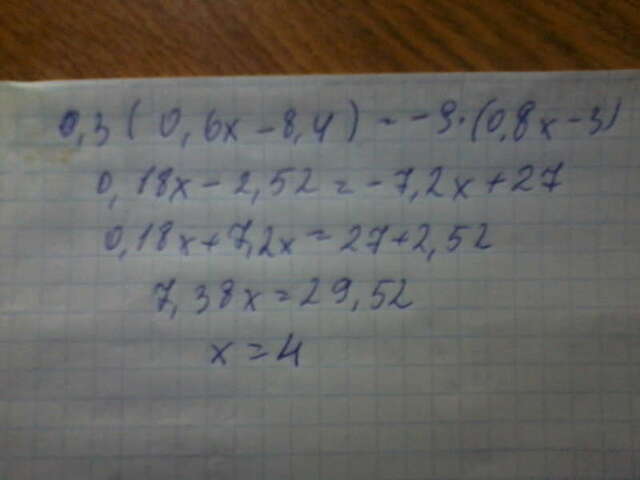 0,3(0,6x-8,4)=-9·(0,8x-3)
0,18x-2,52=-7,2x+27
0,18x+7,2x=27+2,52
7,38x=29,52
x=4